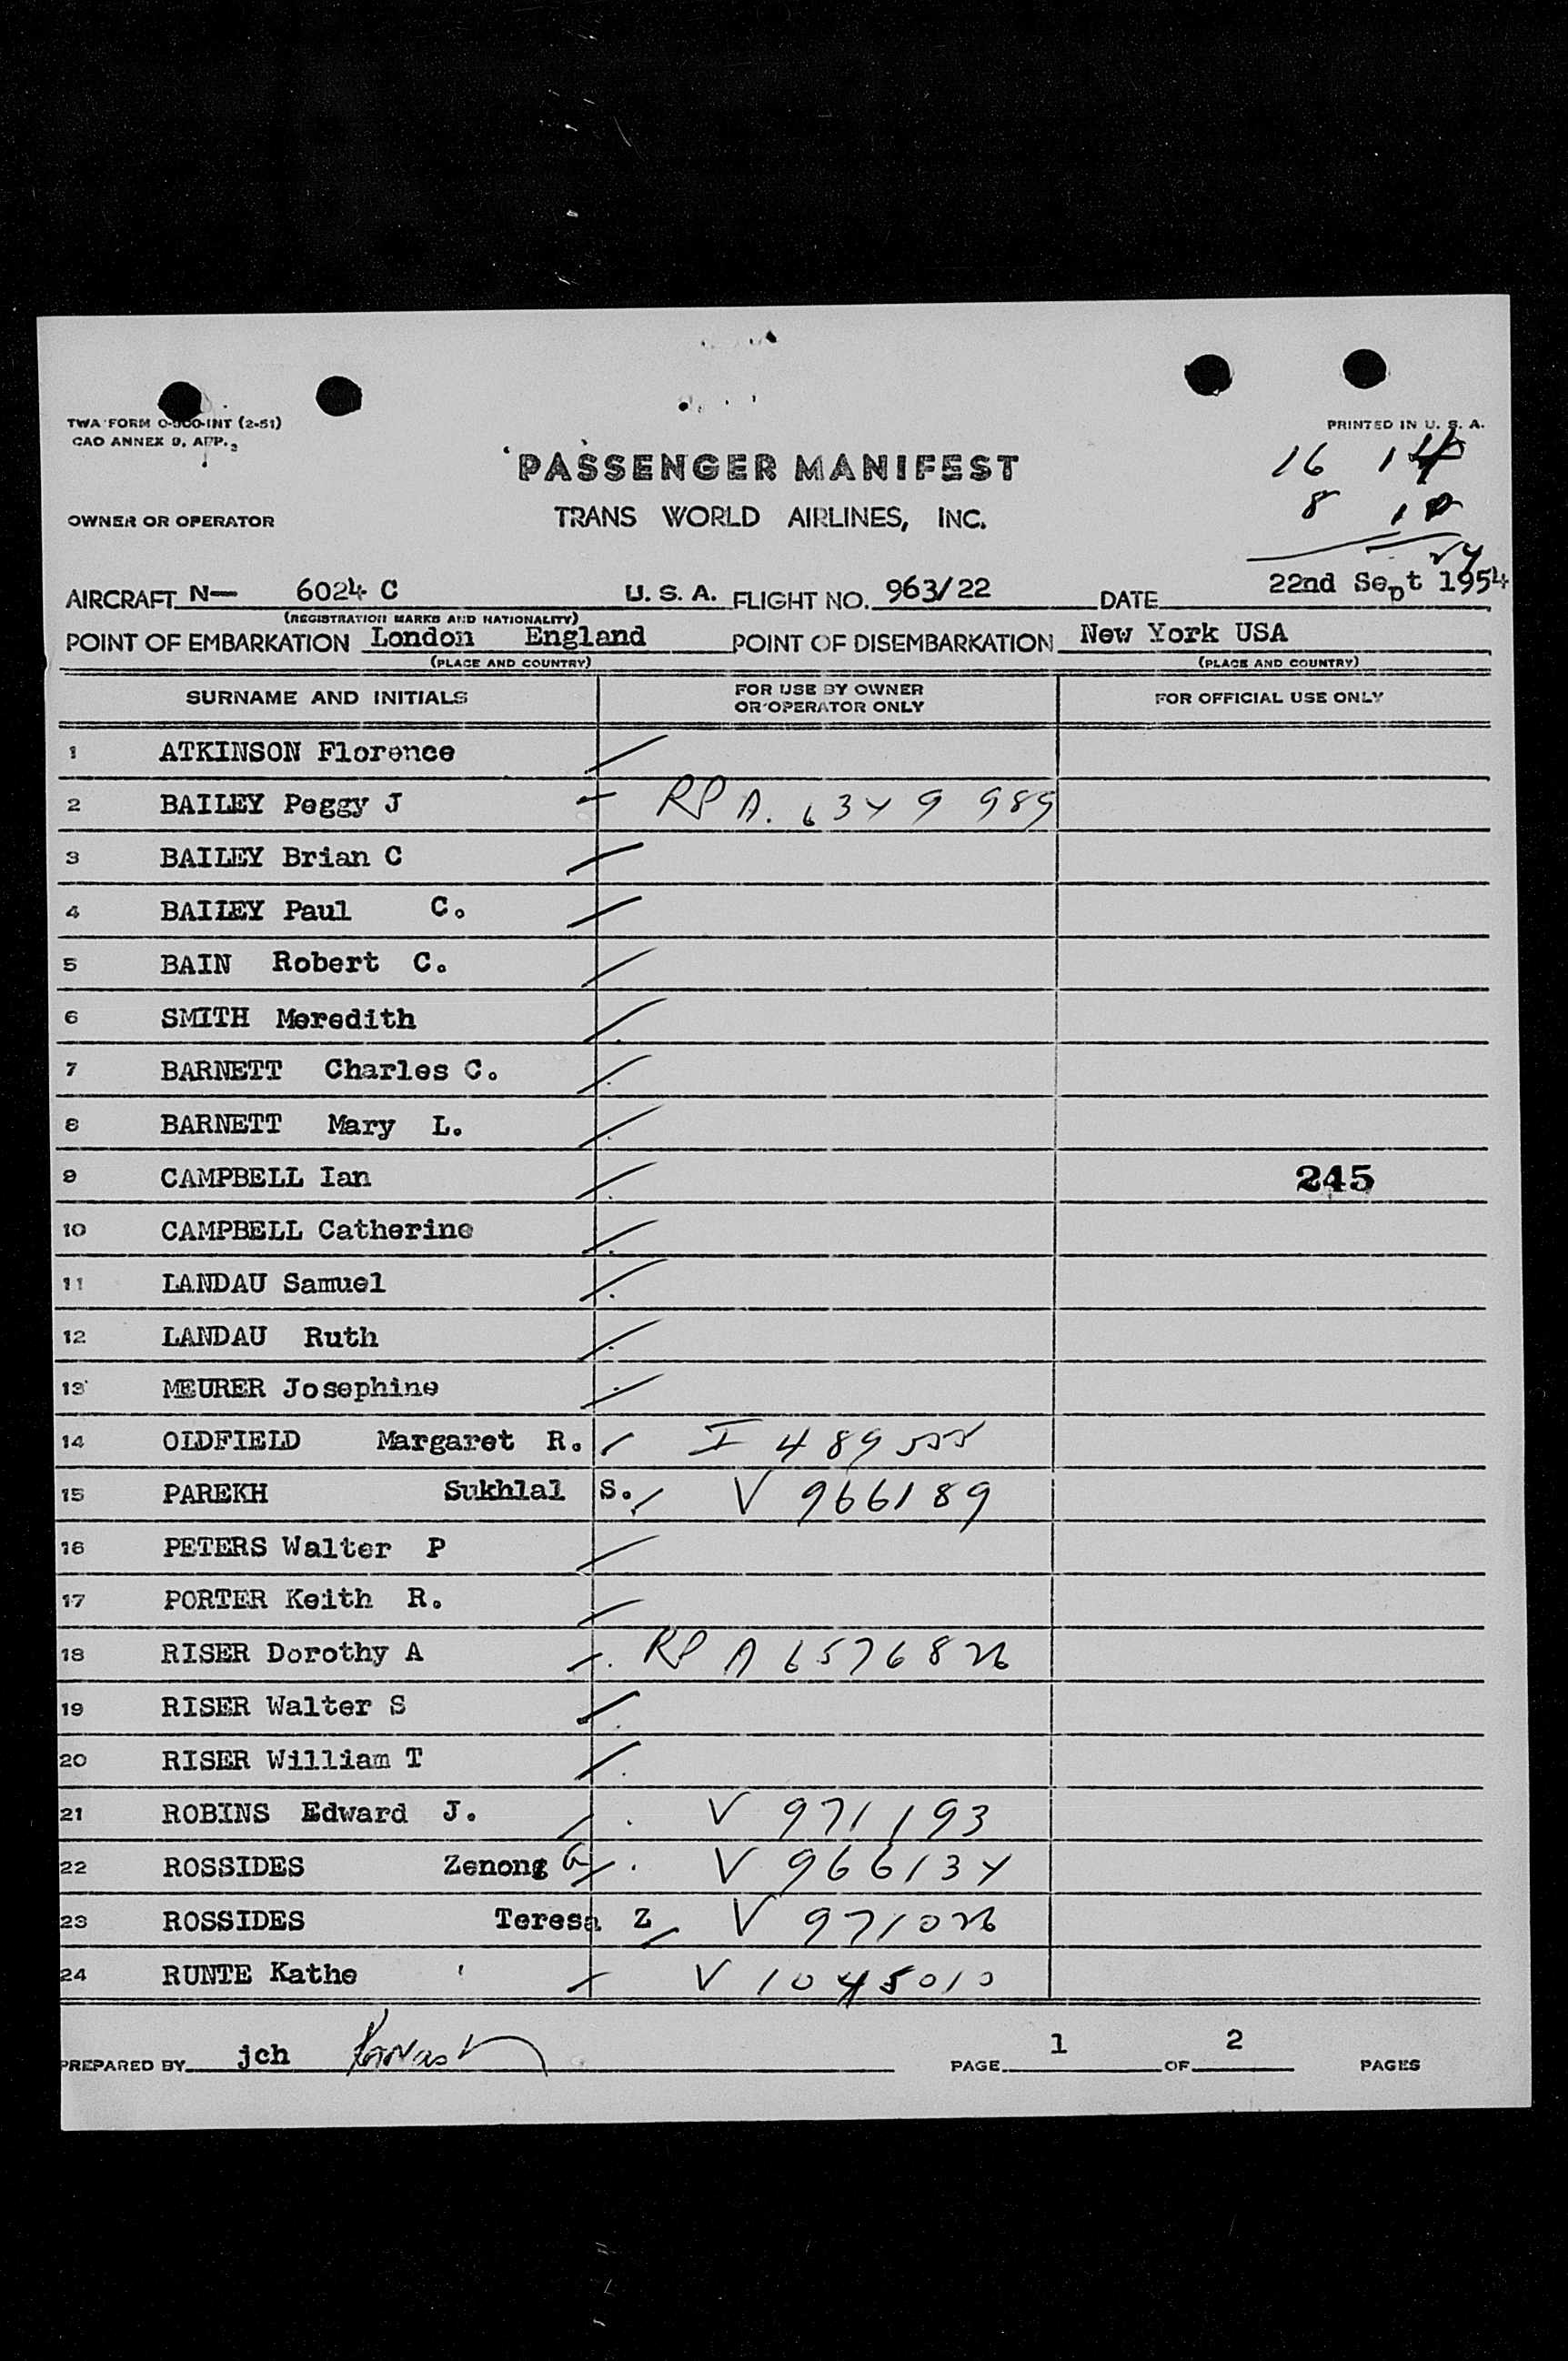 TWA FORM O-300-INT (2-51)
CAO ANNEX 9, APP. 3
PRINTED IN U. S. A.
PASSENGER MANIFEST
16
8
OWNER OR OPERATOR TRANS WORLD AIRLINES, INC.
AIRCRAFT N— 6024 C U. S. A. FLIGHT NO. 963/22 DATE 22nd Sept 1954
(REGISTRATION MARKS AND NATIONALITY)
POINT OF EMBARKATION London England POINT OF DISEMBARKATION New York USA
(PLACE AND COUNTRY) (PLACE AND COUNTRY)
SURNAME AND INITIALS FOR USE BY OWNER OR OPERATOR ONLY FOR OFFICIAL USE ONLY
1 ATKINSON Florence
2 BAILEY Peggy J RP A. 6349 989
3 BAILEY Brian C
4 BAILEY Paul C.
5 BAIN Robert C.
6 SMITH Meredith
7 BARNETT Charles C.
8 BARNETT Mary L.
9 CAMPBELL Ian 245
10 CAMPBELL Catherine
11 LANDAU Samuel
12 LANDAU Ruth
13 MEURER Josephine
14 OLDFIELD Margaret R. I 489555
15 PAREKH Sukhlal S. V 966189
16 PETERS Walter P
17 PORTER Keith R.
18 RISER Dorothy A RP A 6576826
19 RISER Walter S
20 RISER William T
21 ROBINS Edward J. V 971193
22 ROSSIDES Zenong G V 966134
23 ROSSIDES Teresa Z V 971026
24 RUNTE Kathe V 1045010
PREPARED BY jch PAGE 1 OF 2 PAGES